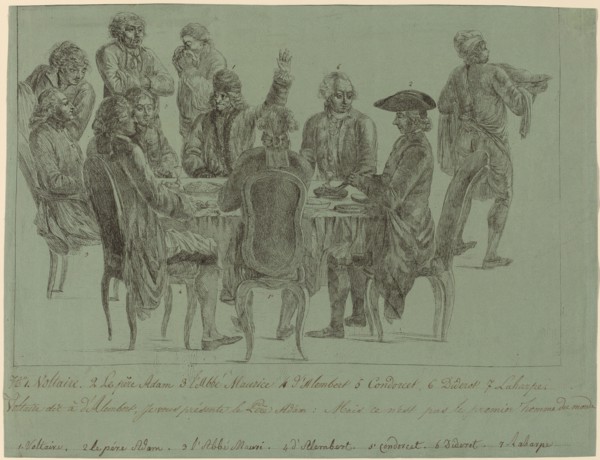 No 1. Voltaire. 2 Le père Adam 3 l'Abbé Maurice 4 d'Alembert 5 Condorcet, 6 Diderot 7 Laharpe
Voltaire dit à d'Alembert, je vous présente le Père Adam: Mais ce n'est pas le premier homme du monde
1 Voltaire. 2 le père Adam. 3 l'Abbé Mauri. 4 d'Alembert. 5 condorcet. 6 Diderot 7 Laharpe